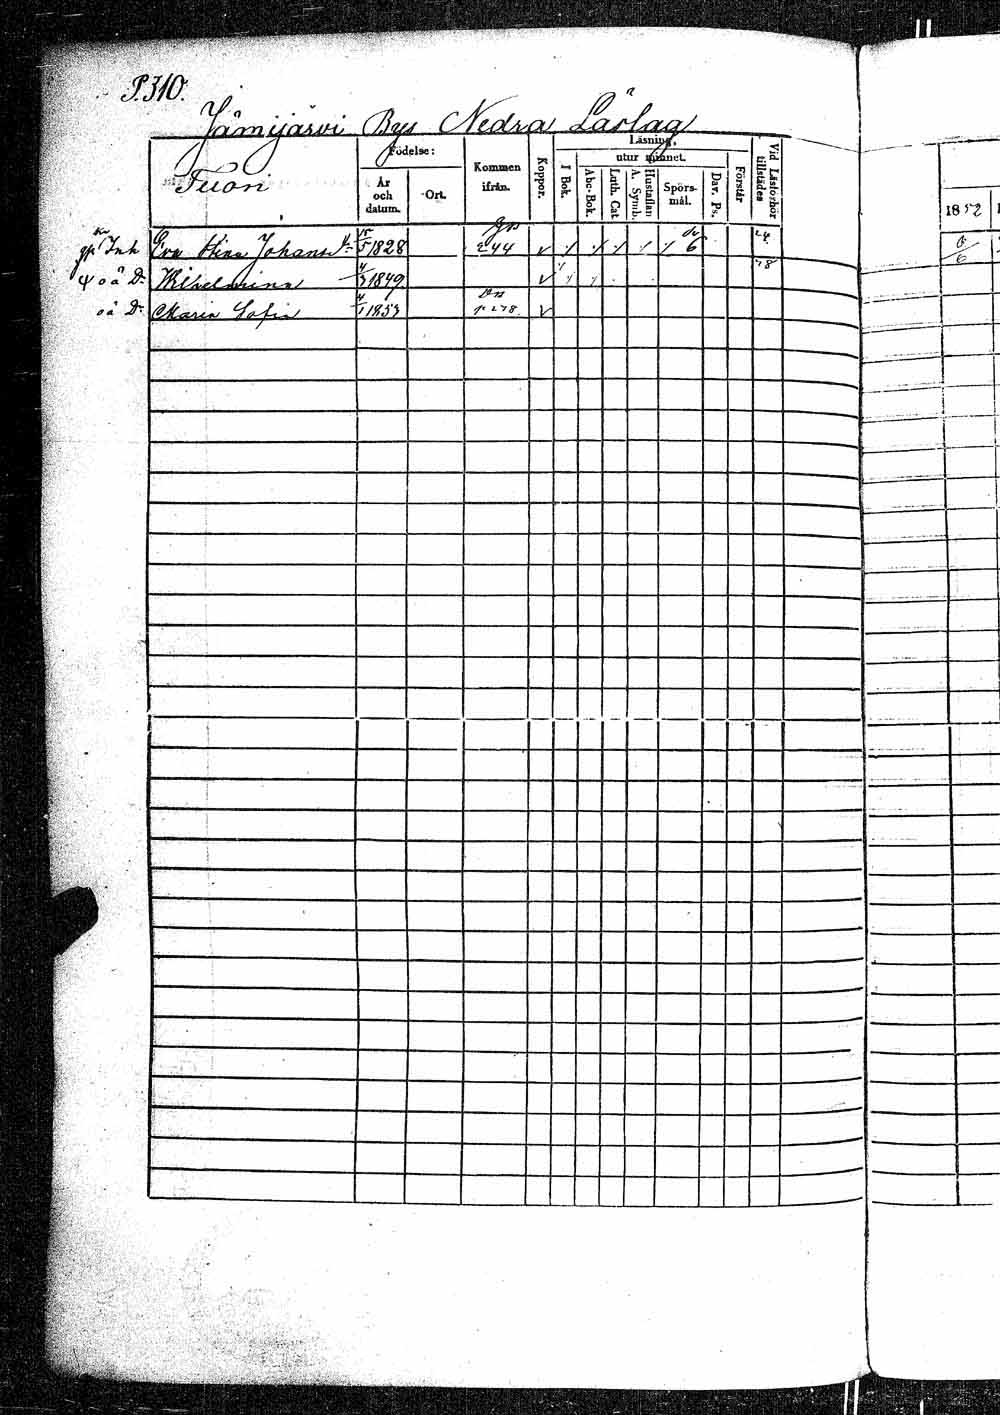 P.310.
Jämijärvi Bys Nedra Läslag
Tuori
Födelse:
År och datum.
Ort.
Kommen ifrån.
Koppor.
Läsning,
utur minnet.
I Bok.
Abc-Bok.
Luth. Cat.
Hustaflan A. Symb.
Spörs-mål.
Dav. Ps.
Förstår
Vid Läsförhör tillstädes
1852
Inh Eva Stina Johansd:r 15/5 1828 244 6 24.
o ä D:r Wilhelmina 4/3 1849 48
o ä D:r Maria Sofia 4/1 1853 p 278